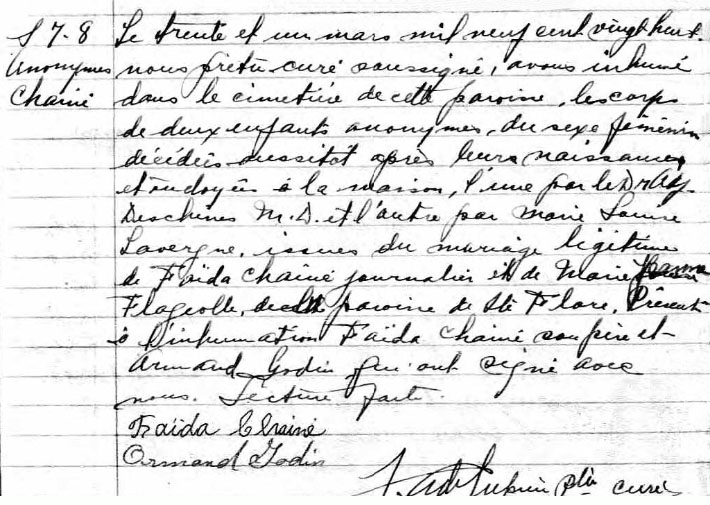 S 7-8
Anonymes
Chainé
Le trente et un mars mil neuf cent vingt huit.
nous prêtre curé soussigné, avons inhumé
dans le cimetière de cette paroisse, les corps
de deux enfants anonymes, du sexe féminin
décédés aussitot après leurs naissances
et ondoyés à la maison, l'une par le Dr Adj.
Deschênes M.D. et l'autre par Marie Louise
Lavergne, issues du mariage légitime
de Faïda Chainé journalier et de Marie
Flageolle, de cette paroisse de Ste Flore. Présents
à l'inhumation Faïda Chainé son père et
Armand Godin qui ont signé avec
nous. Lecture faite.
Faïda Chainé
Ormand Godin
ptre curé